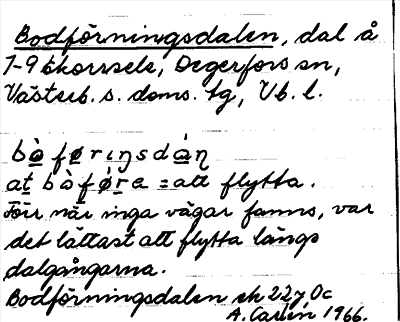 Bodförningsdalen, dal å
7-9 Ekorrsele, Degerfors sn,
Västerb. s. doms. tg, Vb. l.
bò̱ fø̱rıŋsdá̱ṇ
at̲ bò̱ fǿ̱r̲a = att flytta.
Förr när inga vägar fanns, var
det lättast att flytta längs
dalgångarna.
Bodförningsdalen ek 22 7, 0c
A. Carlén 1966.